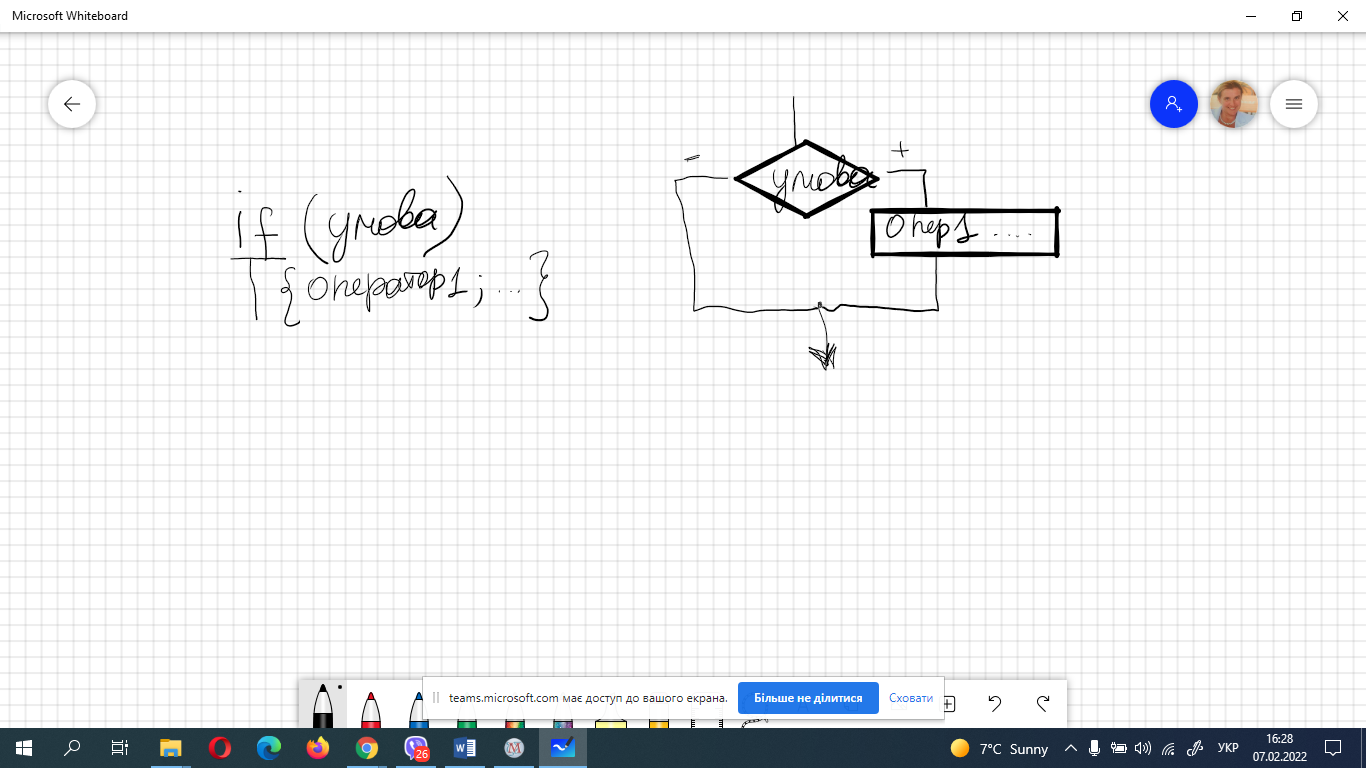 Microsoft Whiteboard
if (умова)
{оператор1; ... }
−
+
умова
Опер1 ....
teams.microsoft.com має доступ до вашого екрана.
Більше не ділитися
Сховати
26
7°C Sunny
УКР
16:28
07.02.2022